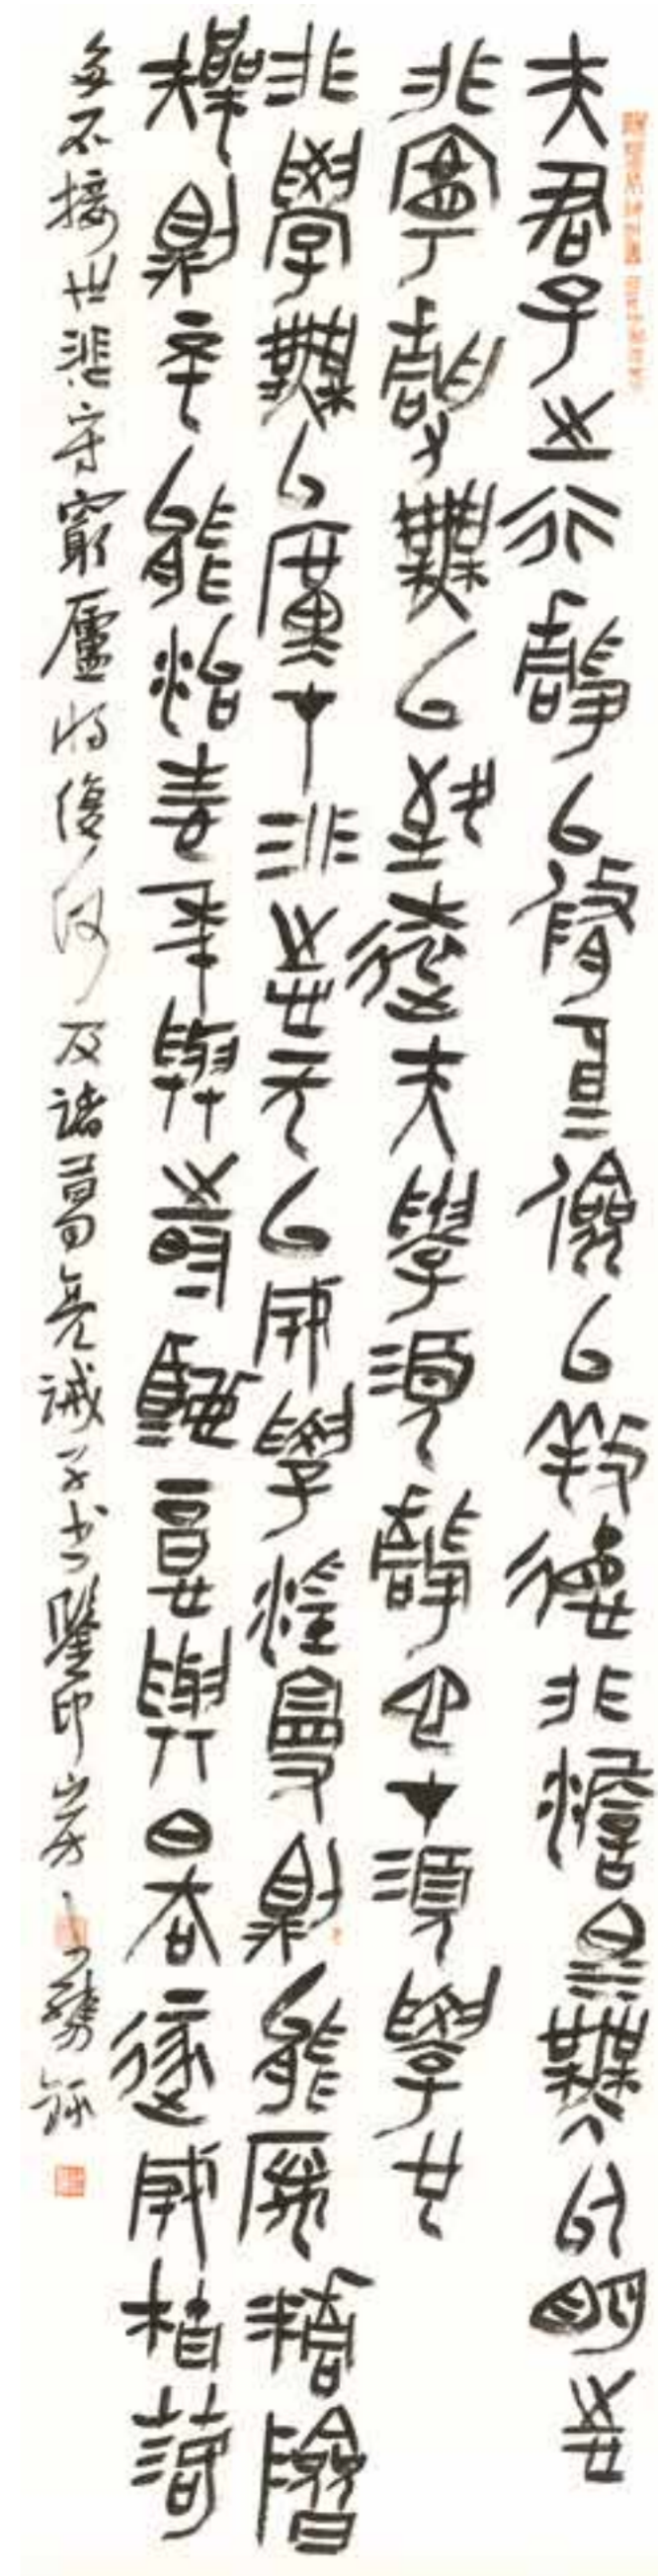 夫君子之行靜以脩身儉以養德非憺泊無以明志
非寧靜無以致遠夫學須靜也才須學也
非學無以廣才非志无以成學慆慢則能厲精險
躁則不能治性年與時馳意與日去遂成枯落
多不接世悲守窮廬將復何及諸葛亮誡子書鑒印山房